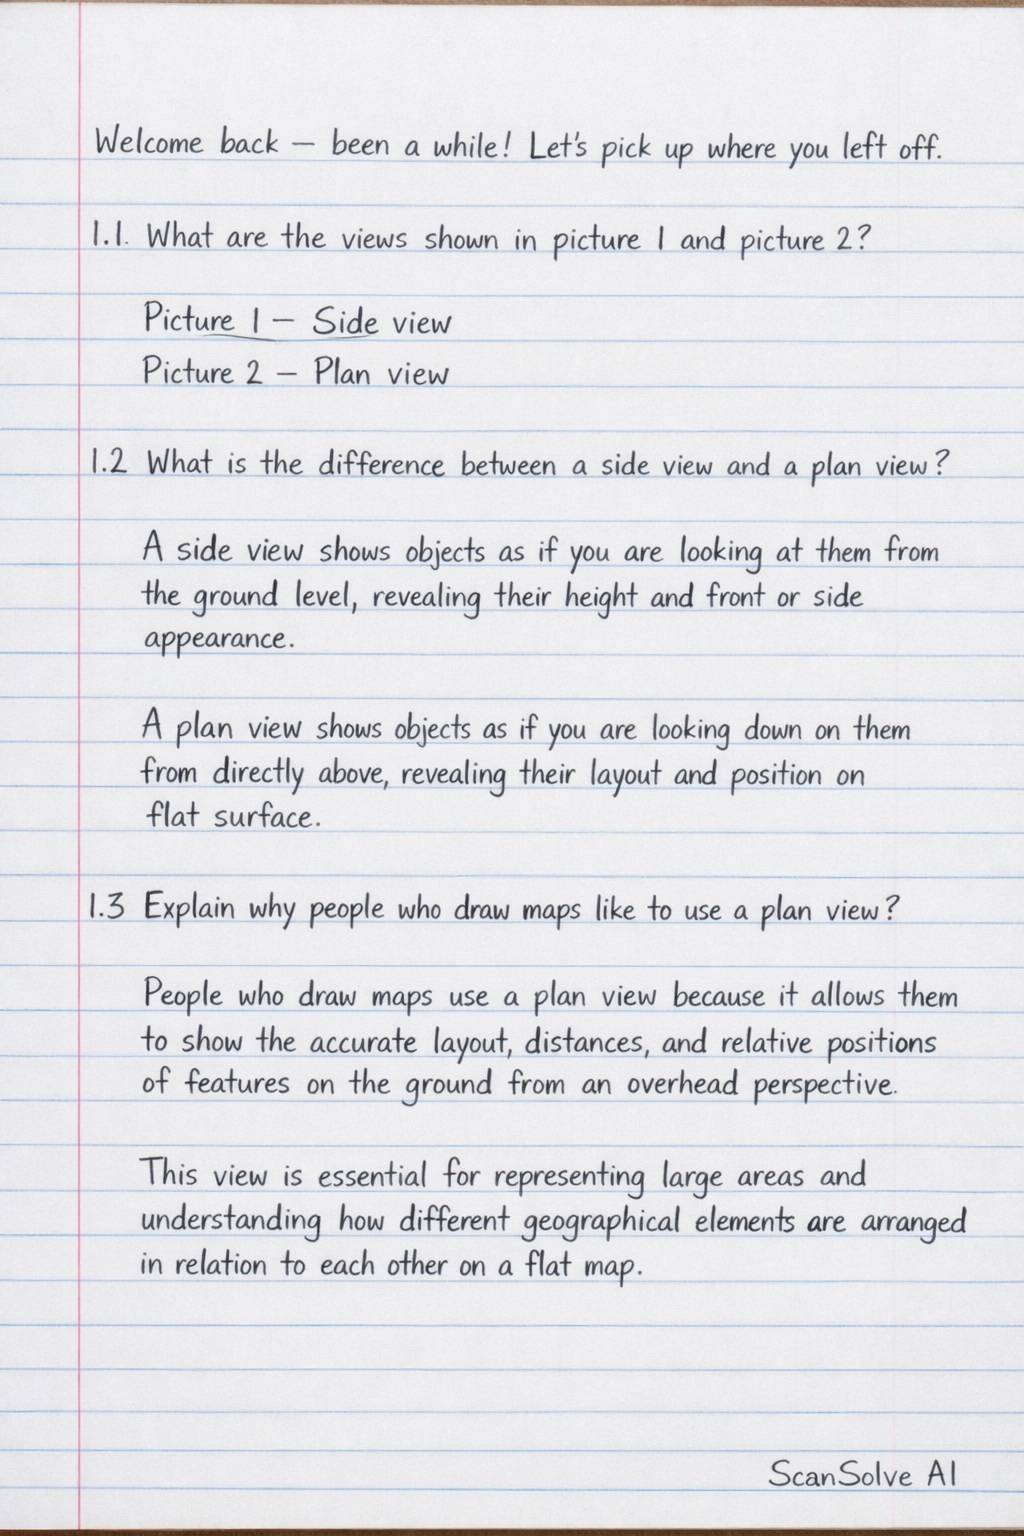 Welcome back — been a while! Let's pick up where you left off.
1.1. What are the views shown in picture 1 and picture 2?
Picture 1 – Side view
Picture 2 – Plan view
1.2 What is the difference between a side view and a plan view?
A side view shows objects as if you are looking at them from
the ground level, revealing their height and front or side
appearance.
A plan view shows objects as if you are looking down on them
from directly above, revealing their layout and position on
flat surface.
1.3 Explain why people who draw maps like to use a plan view?
People who draw maps use a plan view because it allows them
to show the accurate layout, distances, and relative positions
of features on the ground from an overhead perspective.
This view is essential for representing large areas and
understanding how different geographical elements are arranged
in relation to each other on a flat map.
ScanSolve AI